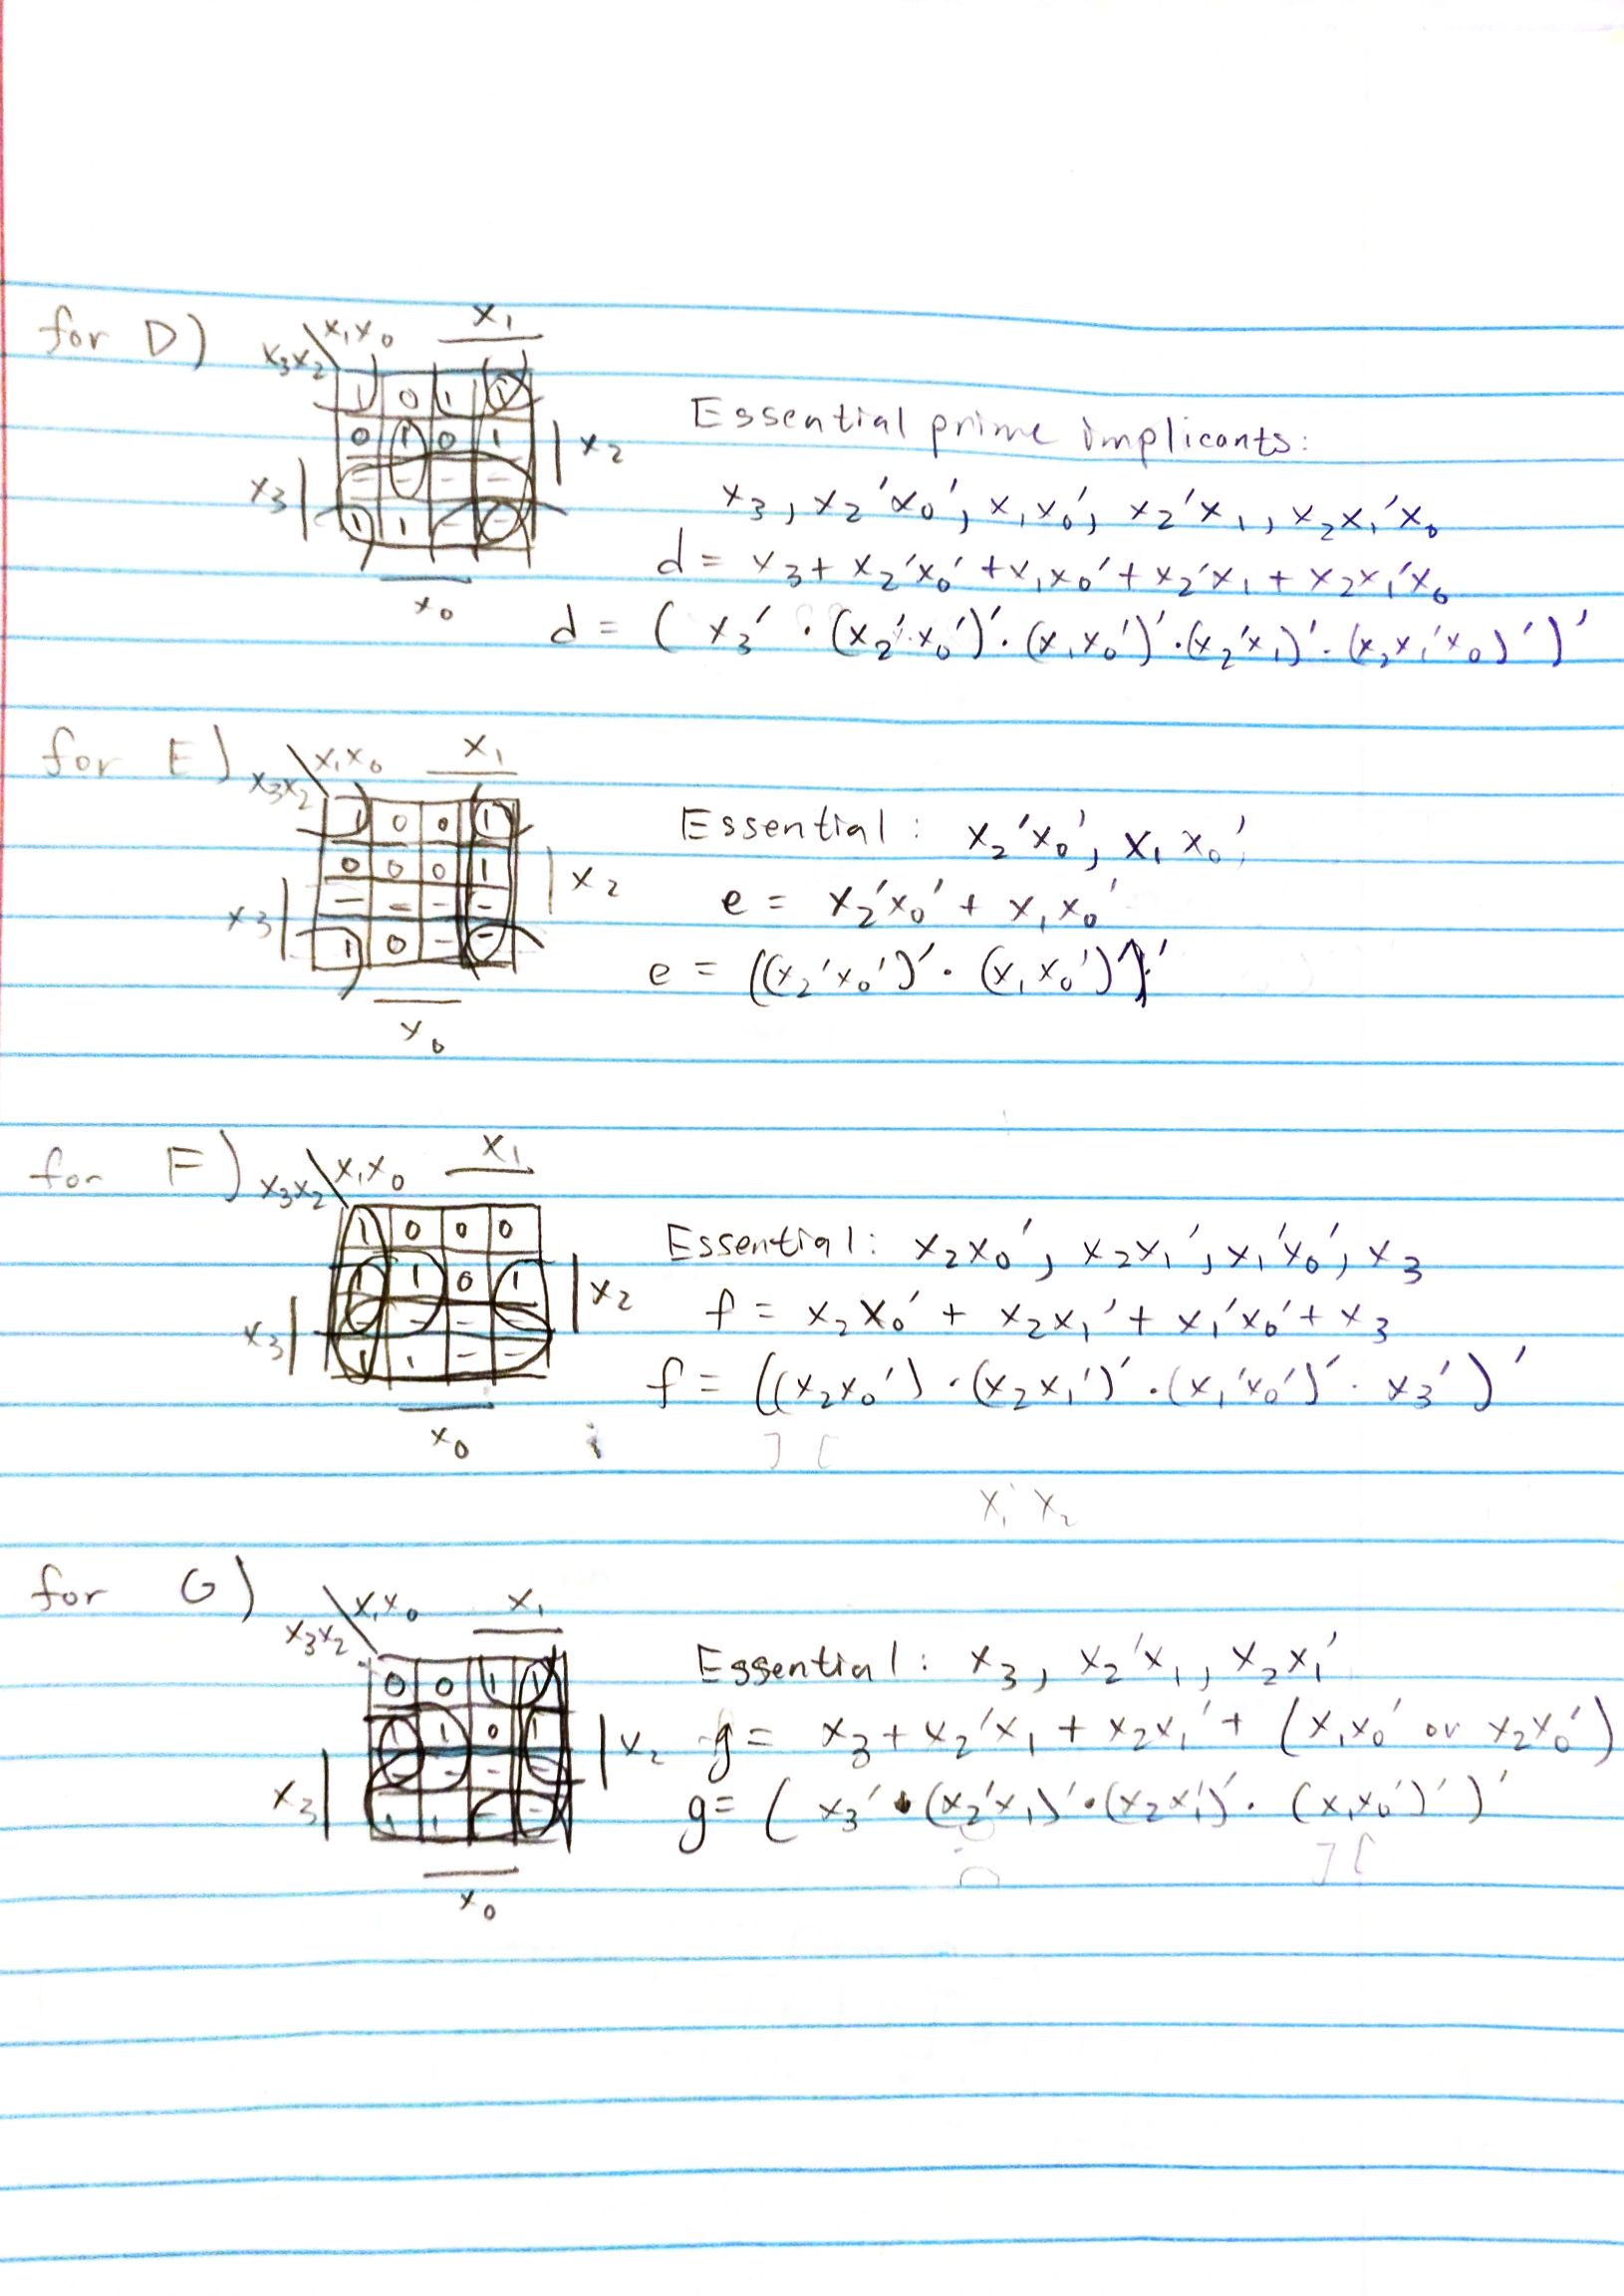 for D) x₃x₂ \ x₁x₀ x₁
1 0 1 1
0 1 0 1 x₂
x₃ – – – –
1 1 – –
x₀
Essential prime implicants:
x₃, x₂'x₀', x₁x₀', x₂'x₁, x₂x₁'x₀
d = x₃ + x₂'x₀' + x₁x₀' + x₂'x₁ + x₂x₁'x₀
d = (x₃' · (x₂'x₀')' · (x₁x₀')' · (x₂'x₁)' · (x₂x₁'x₀)')'
for E) x₃x₂ \ x₁x₀ x₁
1 0 0 1
0 0 0 1 x₂
x₃ – – – –
1 0 – –
x₀
Essential: x₂'x₀', x₁x₀'
e = x₂'x₀' + x₁x₀'
e = ((x₂'x₀')' · (x₁x₀')')'
for F) x₃x₂ \ x₁x₀ x₁
1 0 0 0
1 1 0 1 x₂
x₃ – – – –
1 1 – –
x₀
Essential: x₂x₀', x₂x₁', x₁'x₀', x₃
f = x₂x₀' + x₂x₁' + x₁'x₀' + x₃
f = ((x₂x₀') · (x₂x₁')' · (x₁'x₀')' · x₃')'
] [
x₁' x₂
for G) x₃x₂ \ x₁x₀ x₁
0 0 1 1
1 1 0 1 x₂
x₃ – – – –
1 1 – –
x₀
Essential: x₃, x₂'x₁, x₂x₁'
g = x₃ + x₂'x₁ + x₂x₁' + (x₁x₀' or x₂x₀')
g = (x₃' · (x₂'x₁)' · (x₂x₁')' · (x₁x₀')')'
] [